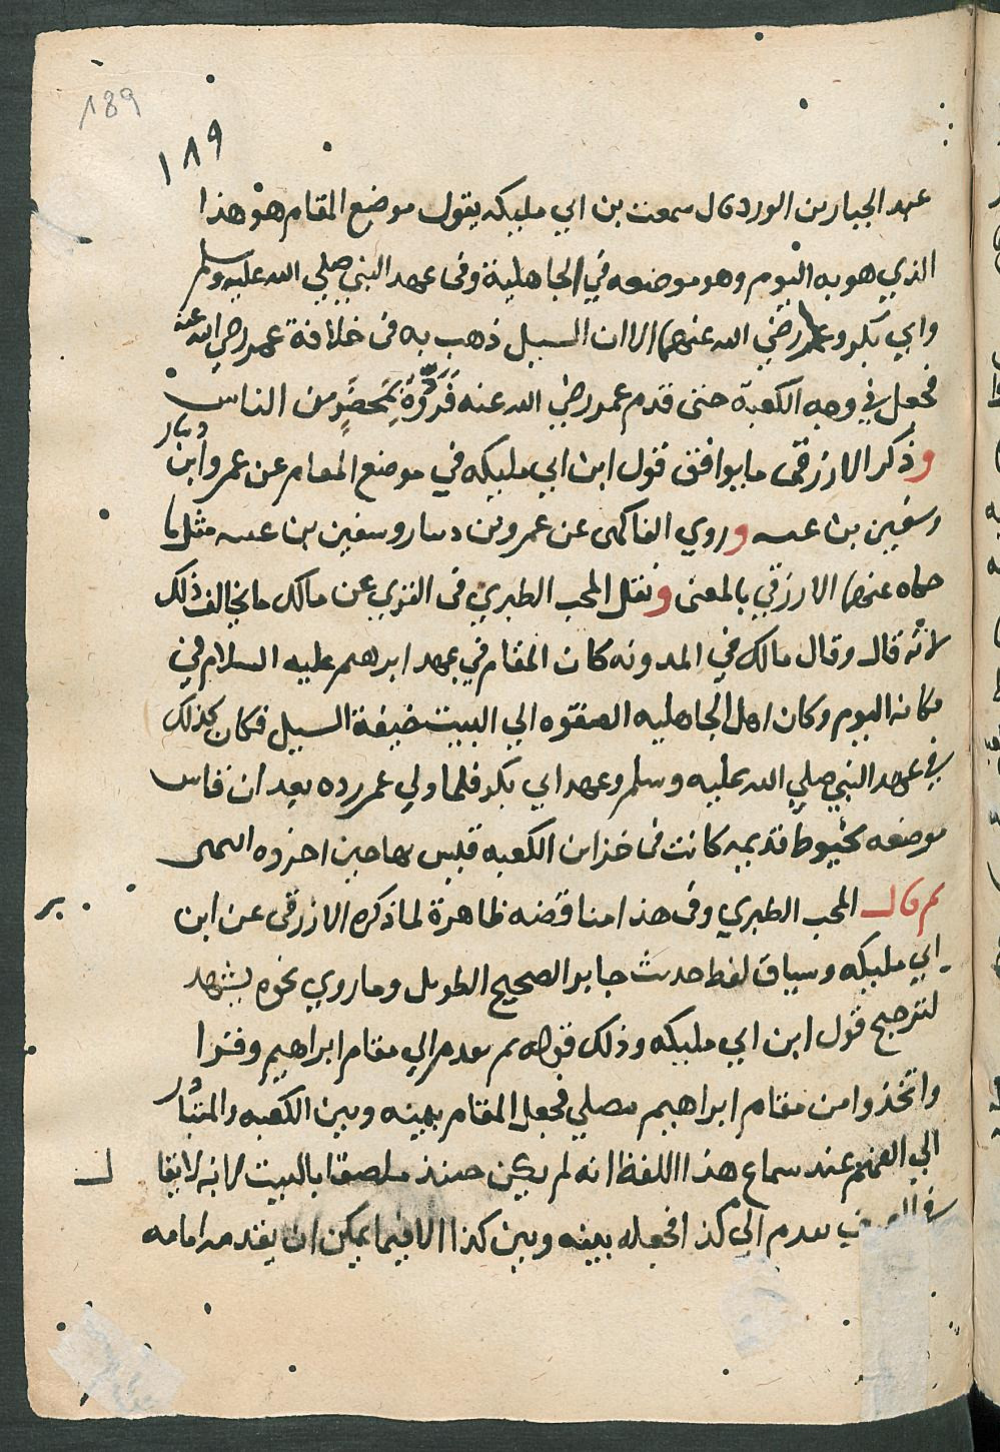 189
١٨٩
عبد الجبار بن الورد قال سمعت بن ابي مليكه يقول موضع المقام هو هذا
الذي هو به اليوم وهو موضعه في الجاهلية وفى عهد النبي صلي الله عليه وسلم
وابي بكر وعمر رضي الله عنهما الا ان السيل ذهب به فى خلافة عمر رضي الله عنه
فجعل في وجه الكعبة حتى قدم عمر رضي الله عنه فرده بمحضر من الناس
وذكر الازرقى ما يوافق قول ابن ابي مليكه في موضع المقام عن عمرو ابن دينار
وسفين بن عيينه وروي الفاكهى عن عمرو بن دينار وسفين بن عيينه مثل ما
حكاه عنهما الازرقي بالمعنى ونقل المحب الطبري فى القري عن مالك ما يخالف ذلك
لانه قال وقال مالك في المدونه كان المقام في عهد ابرهيم عليه السلام في
مكانه اليوم وكان اهل الجاهليه الصقوه الي البيت خيفة السيل فكان كذلك
في عهد النبي صلي الله عليه وسلم وعهد ابي بكر فلما ولي عمر رده بعد ان قاس
موضعه بخيوط قديمه كانت فى خزاين الكعبه قيس بها حين اخروه انتهى
ثم قال المحب الطبري وفى هذا مناقضه ظاهرة لما ذكره الازرقى عن ابن
ابي مليكه وسياق لفظ حديث جابر الصحيح الطويل وما روي نحوه يشهد
لترجيح قول ابن ابي مليكه وذلك قوله ثم تقدم الي مقام ابراهيم وقرا
واتخذوا من مقام ابراهيم مصلي فجعل المقام بينه وبين الكعبه والمتبادر
الي الفهم عند سماع هذا اللفظ انه لم يكن حينئذ ملصقا بالبيت لانه لا يقال
في العرف تقدم الي كذا فجعله بينه وبين كذا الا فيما يمكن ان يقدمه امامه